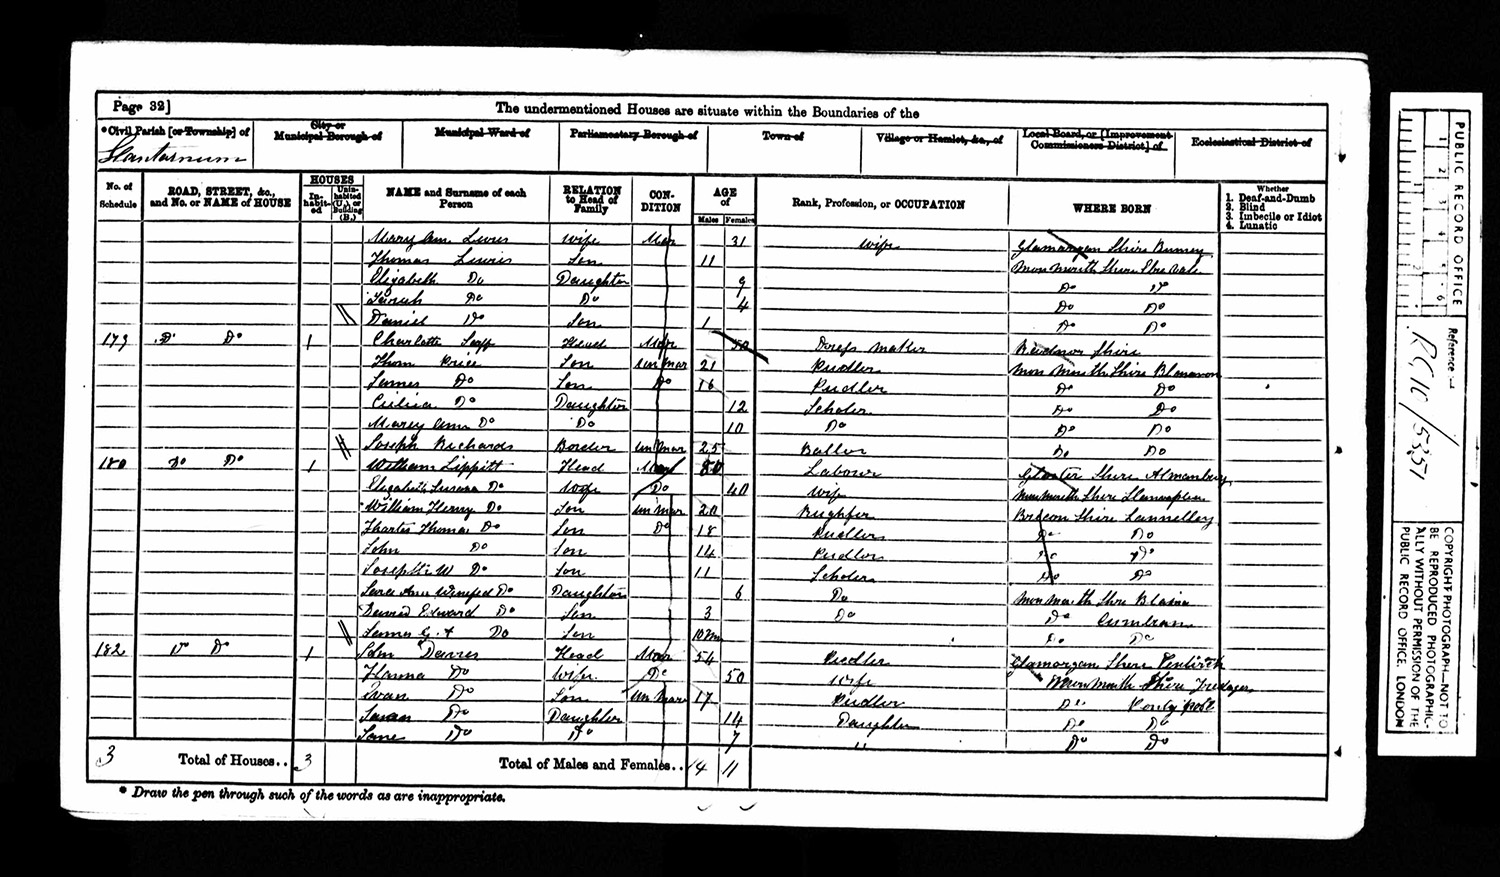 Page 32]
The undermentioned Houses are situate within the Boundaries of the
*Civil Parish [or Township] of
City or Municipal Borough of
Municipal Ward of
Parliamentary Borough of
Town of
Village or Hamlet, &c., of
Local Board, or [Improvement Commissioners District] of
Ecclesiastical District of
Llantarnum
No. of Schedule
ROAD, STREET, &c., and No. or NAME of HOUSE
HOUSES
Inhabited
Uninhabited (U.), or Building (B.)
NAME and Surname of each Person
RELATION to Head of Family
CONDITION
AGE of
Males
Females
Rank, Profession, or OCCUPATION
WHERE BORN
Whether
1. Deaf-and-Dumb
2. Blind
3. Imbecile or Idiot
4. Lunatic
Mary Ann Lewis Wife Mar 31 Wife Glamorgan Shire Rumney
Thomas Lewis Son 11 Monmouth Shire Ebw Vale
Elizabeth Do Daughter 9 Do Do
Do Do 4 Do Do
Daniel Do Son 1 Do Do
179 Do Do 1 Charlotte Head Mar 50 Dress Maker Radnor Shire
Thom Price Son un mar 21 Pudler Monmouth Shire Blanavon
James Do Son Do 16 Pudler Do Do
Do Daughter 12 Scholar Do Do
Mary Ann Do Do 10 Do Do Do
Joseph Richards Border un mar 25 Baller Do Do
180 Do Do 1 William Lippitt Head Mar 50 Labour Gloster Shire
Elizabeth Susana Do Wife Do 40 Wife Monmouth Shire
William Henry Do Son un mar 20 Brecon Shire Lannelley
Thomas Do Son Do 18 Pudler Do Do
John Do Son 14 Pudler Do Do
Joseph W Do Son 11 Scholar Do Do
Sara Ann Winifed Do Daughter 6 Do Monmouth Shire Blaina
David Edward Do Son 3 Do Do Cumbran
James G. Do Son 10 m Do Do
182 Do Do 1 John Davies Head Mar 54 Pudler Glamorgan Shire
Hanna Do Wife Do 50 Wife Monmouth Shire Tredager
Evan Do Son un mar 17 Pudler Do
Susan Do Daughter 14 Daughter Do Do
Jane Do Do 7 " Do Do
3 Total of Houses.. 3 Total of Males and Females.. 14 11
* Draw the pen through such of the words as are inappropriate.
PUBLIC RECORD OFFICE
1 2 3 4 5 6
Reference:-
RG 10/5351
COPYRIGHT PHOTOGRAPH—NOT TO BE REPRODUCED PHOTOGRAPHICALLY WITHOUT PERMISSION OF THE PUBLIC RECORD OFFICE, LONDON